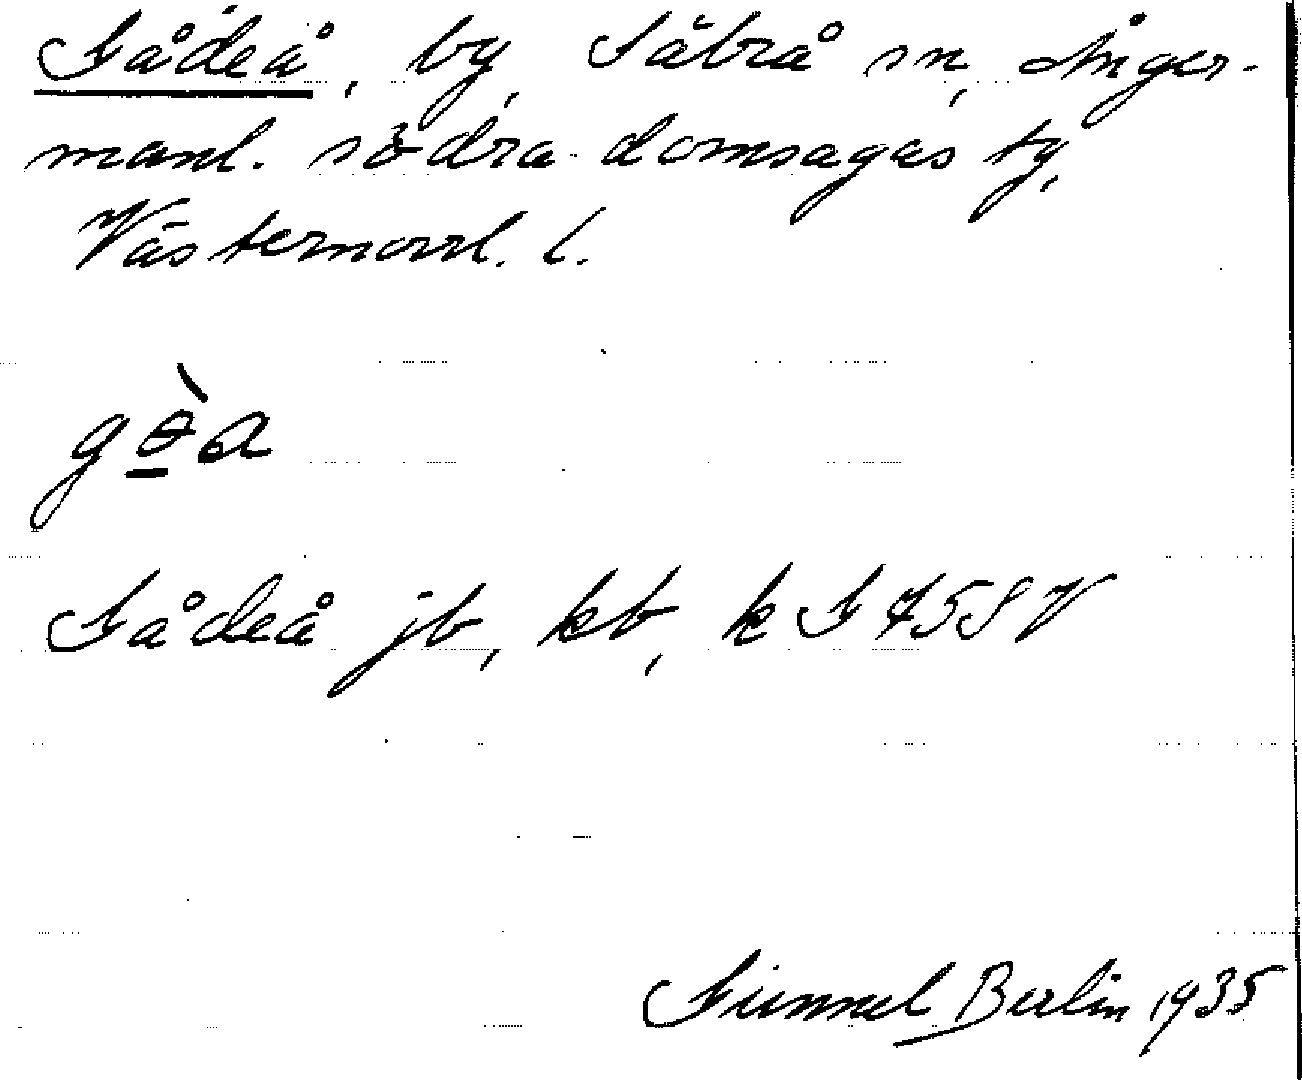 Gådeå, by, Säbrå sn, Ånger-
manl. södra domsagas tg,
Västernorrl. l.
gɵ̠̀a
Gådeå jb, kb, k G 75 SV
Gunnel Berlin 1935